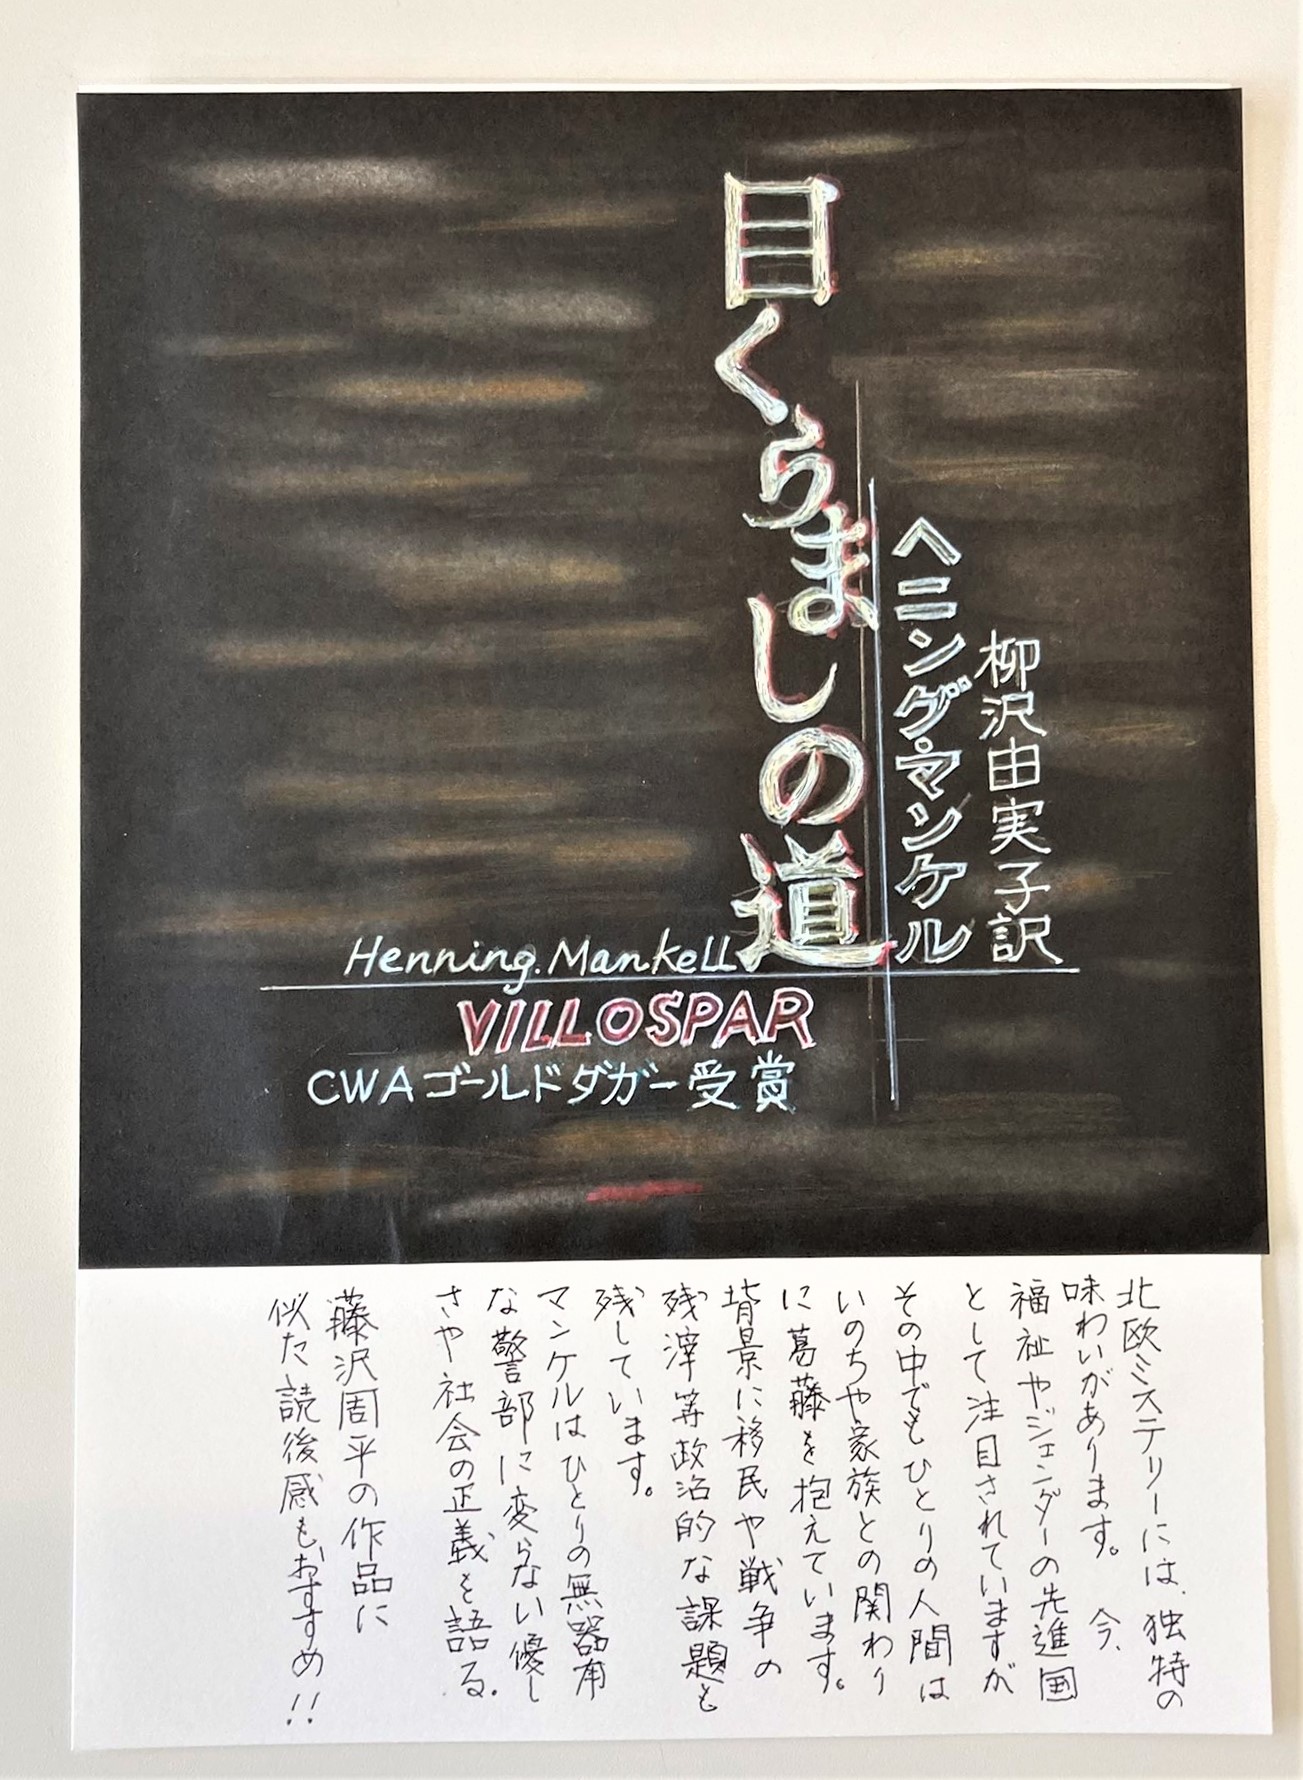 目くらましの道
ヘニング・マンケル
柳沢由実子訳
Henning.Mankell
VILLOSPAR
CWAゴールドダガー受賞
北欧ミステリーには、独特の
味わいがあります。 今、
福祉やジェンダーの先進国
として注目されていますが
その中でもひとりの人間は
いのちや家族との関わり
に葛藤を抱えています。
背景に移民や戦争の
残滓等政治的な課題も
残しています。
マンケルはひとりの無器用
な警部に変らない優し
さや社会の正義を語る。
藤沢周平の作品に
似た読後感もおすすめ!!